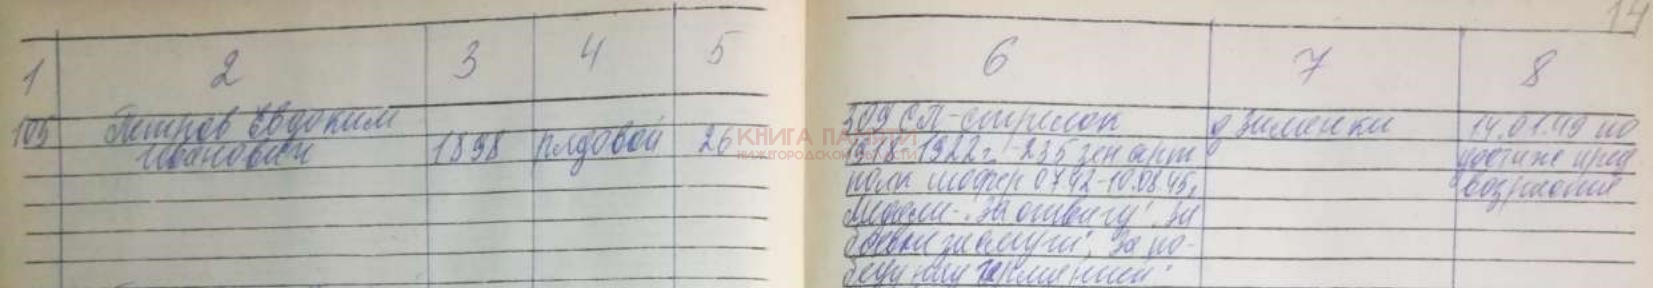 14
1 2 3 4 5 6 7 8
105 Петров Евдоким Иванович 1898 рядовой 26
309 СП - стрелок
1918-1922 г. - 235 зен арт
полк шофер 07.42-10.08.45,
Медали - "За отвагу", "За
боевые заслуги", "За по-
беду над Германией"
д Зименки
14.01.49 по
достиже пред
возраста
КНИГА ПАМЯТИ
НИЖЕГОРОДСКОЙ ОБЛАСТИ